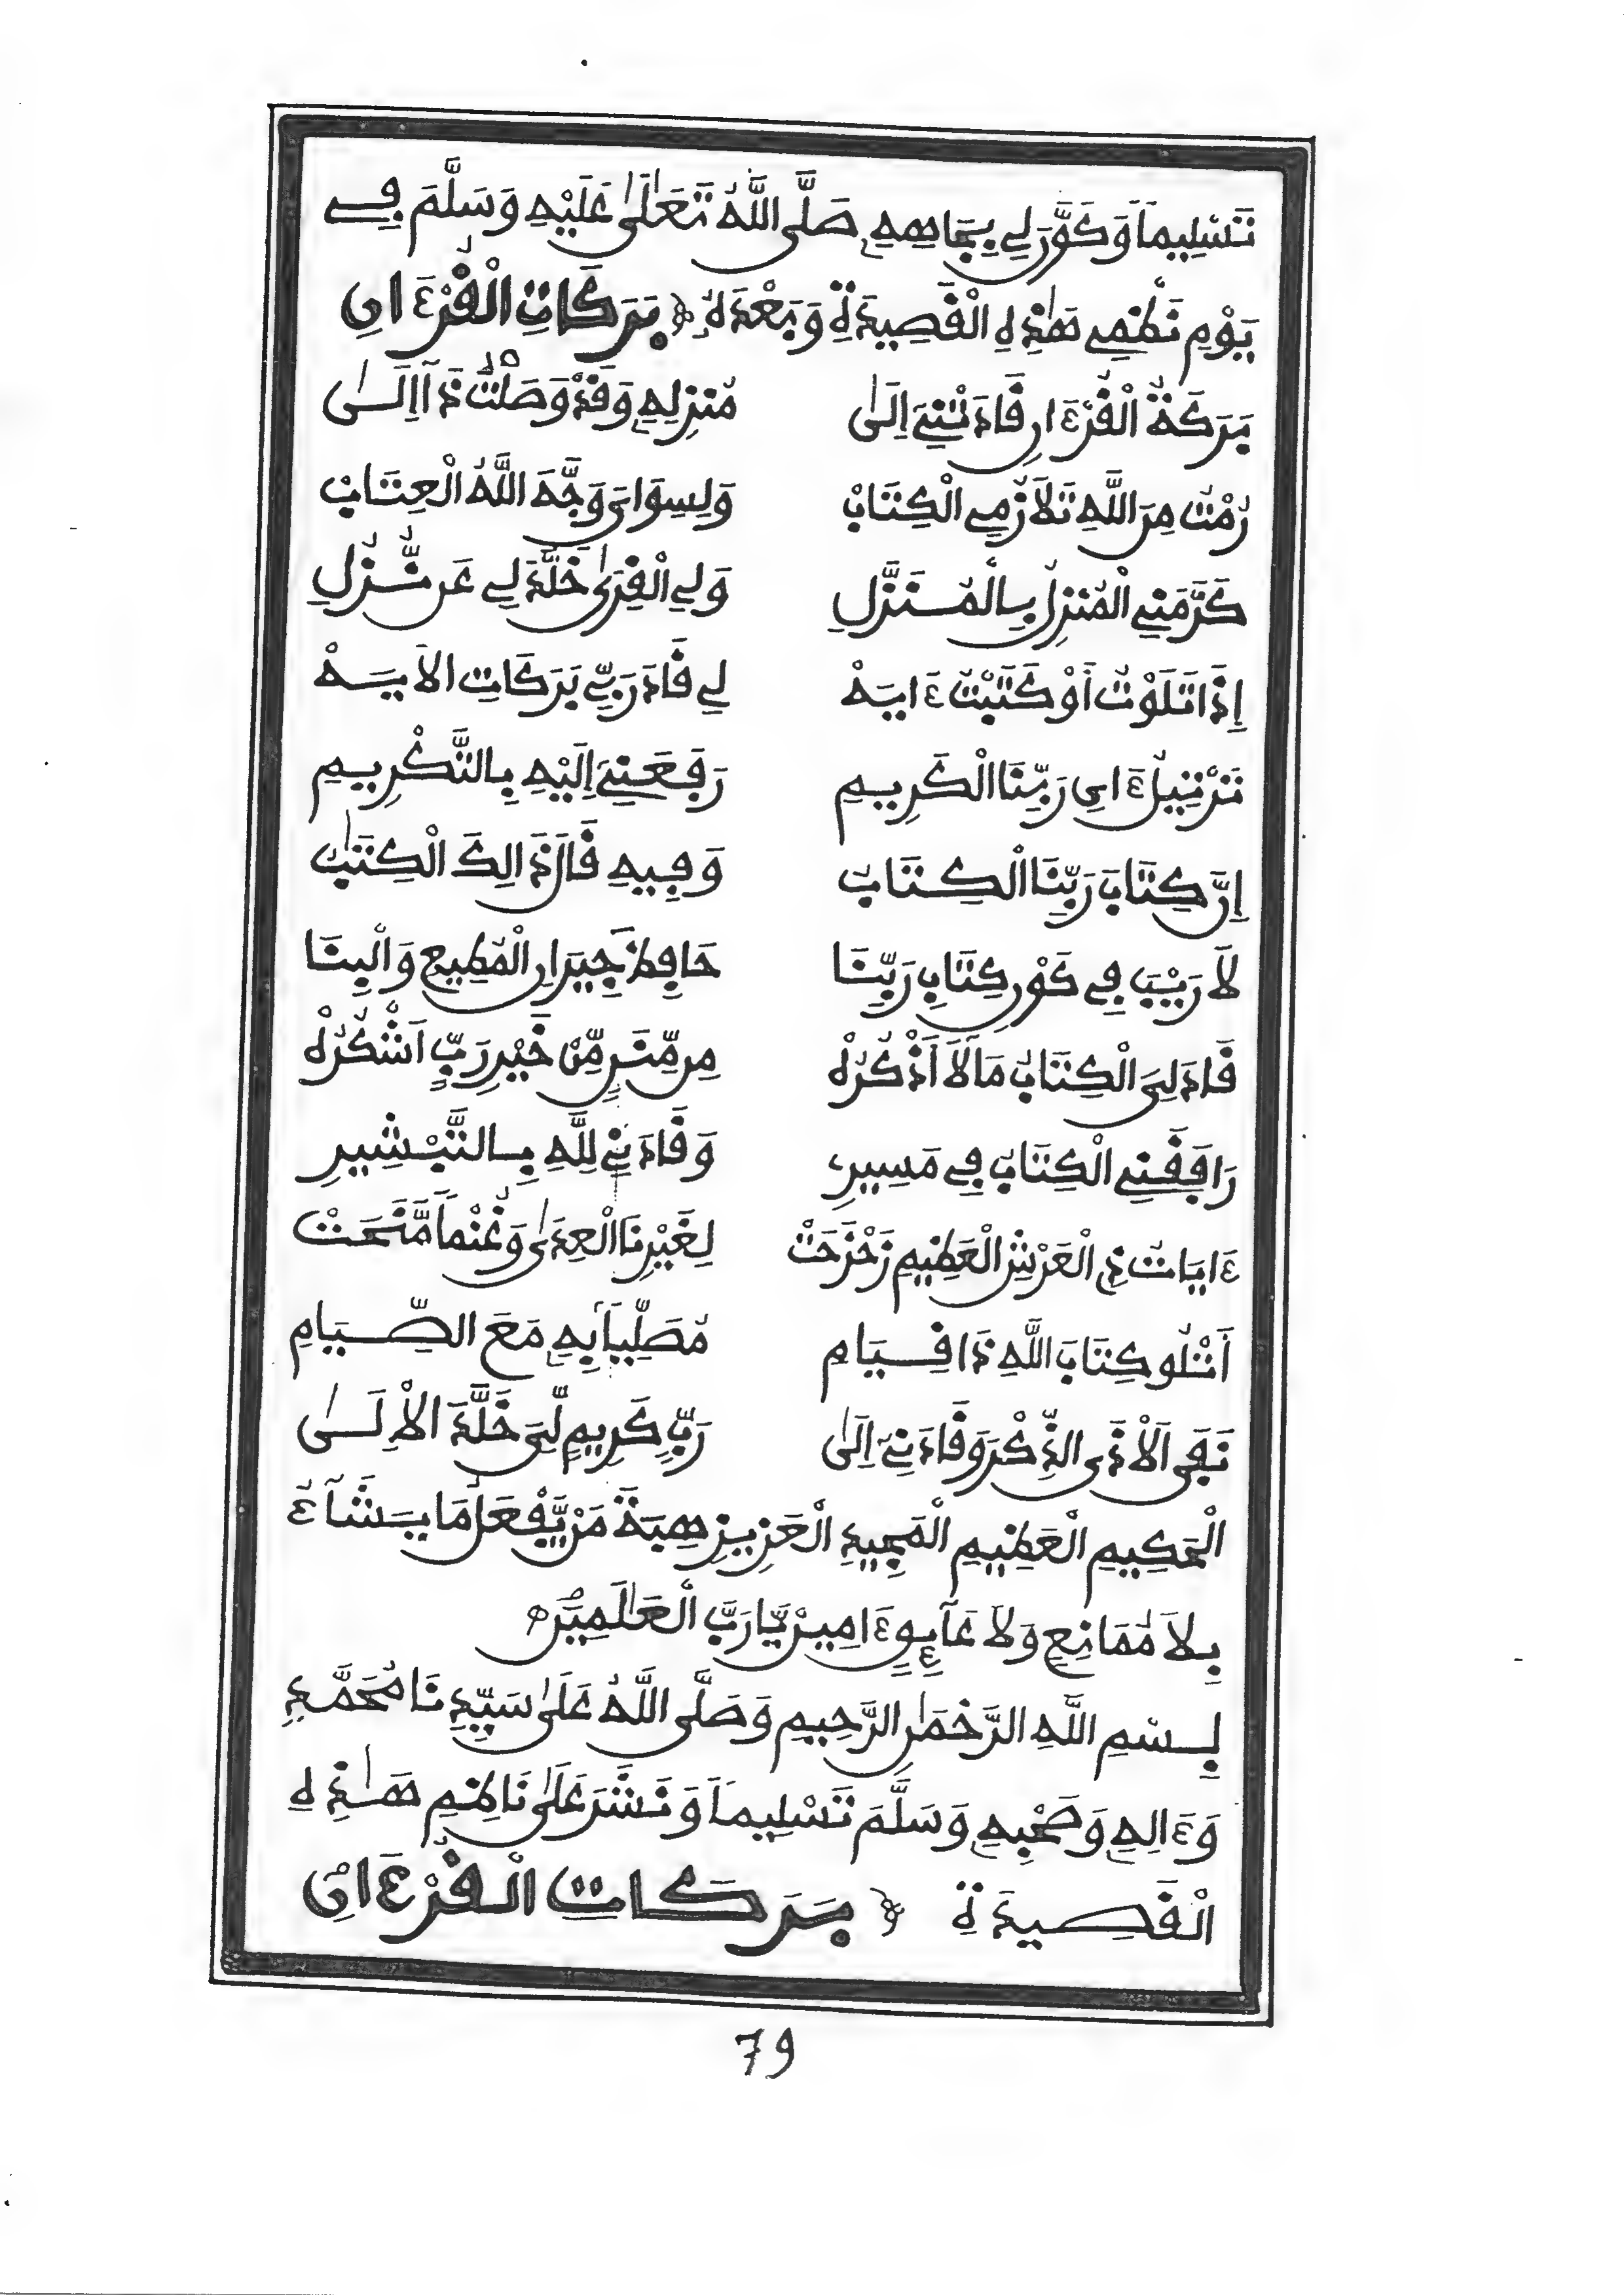 تَسْلِيماً وَكَوَّرَ لِي بِجَاهِهِ صَلَّى اللَّهُ تَعَلَىٰ عَلَيْهِ وَسَلَّمَ فِي
يَوْمِ نَظْمِي هَٰذِهِ الْقَصِيدَةِ وَبَعْدَهُ بَرَكَاتِ الْقُرْءَانِ
بَرَكَةُ الْقُرْءَانِ قَادَتْنِي إِلَىٰ مُنزِلِهِ وَقَدْ وَصَلْتُ ذَا إِلَىٰ
رُمْتُ مِنَ اللَّهِ تَلَازُمِي الْكِتَابْ وَلِسِوَايَ وَجَّهَ اللَّهُ الْعِتَابْ
كَرَّمَنِي الْمُنزِلُ بِالْمُنَزَّلِ وَلِي الْقِرَىٰ خَلَّدَ لِي عَن نُّزُلِ
إِذَا تَلَوْتُ أَوْ كَتَبْتُ ءَايَهْ لِي قَادَ رَبِّي بَرَكَاتِ الَايَهْ
تَرْتِيلُ ءَايِ رَبِّنَا الْكَرِيمِ رَفَعَنِي إِلَيْهِ بِالتَّكْرِيمِ
إِنَّ كِتَابَ رَبِّنَا الْكِتَابُ وَفِيهِ قَالَ ذَالِكَ الْكِتَٰبُ
لَا رَيْبَ فِي كَوْنِ كِتَابِ رَبِّنَا حَافِظَ جِيرَانِ الْمُطِيعِ وَالْبِنَا
قَادَ لِيَ الْكِتَابُ مَا لَا أَذْكُرُهْ مِن مِّنَنٍ مِّنْ خَيْرِ رَبٍّ أَشْكُرُهْ
رَافَقَنِي الْكِتَابُ فِي مَسِيرِ وَقَادَنِي لِلَّهِ بِالتَّبْشِيرِ
ءَايَاتُ ذِي الْعَرْشِ الْعَظِيمِ زَحْزَحَتْ لِغَيْرِنَا الْعِدَىٰ وَغُنْماً مَّنَحَتْ
أَتْلُو كِتَابَ اللَّهِ ذَا قِيَامِ مُصَلِّياً بِهِ مَعَ الصِّيَامِ
نَفَى الَاذَى الذِّكْرُ وَقَادَنِي إِلَىٰ رَبٍّ كَرِيمٍ لِّيَ خَلَّدَ الِالَىٰ
الْحَكِيمِ الْعَظِيمِ الْمَجِيدِ الْعَزِيزِ هِبَةَ مَنْ يَّفْعَلُ مَا يَشَآءُ
بِلَا مُمَانِعٍ وَلَا عَآئِقٍ ءَامِينْ يَّا رَبَّ الْعَٰلَمِينَ
بِسْمِ اللَّهِ الرَّحْمَٰنِ الرَّحِيمِ وَصَلَّى اللَّهُ عَلَىٰ سَيِّدِنَا مُحَمَّدٍ
وَءَالِهِ وَصَحْبِهِ وَسَلَّمَ تَسْلِيماً وَنَشَرَ عَلَىٰ نَاظِمِ هَٰذِهِ
الْقَصِيدَةِ بَرَكَاتِ الْقُرْءَانِ
79